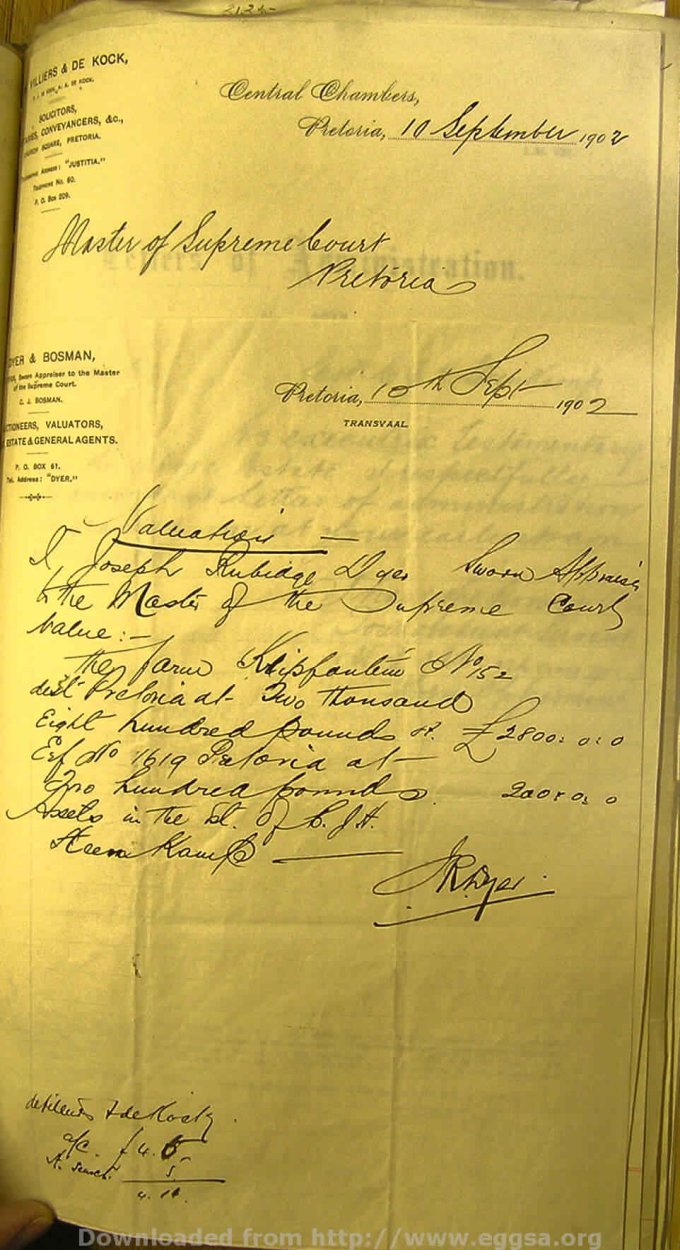 VILLIERS & DE KOCK,
SOLICITORS,
CONVEYANCERS, &c.,
SQUARE, PRETORIA.
"JUSTITIA."
Telephone No. 60.
P. O. Box 209.
Central Chambers,
Pretoria, 10 September 1902
Master of Supreme Court
Pretoria
DYER & BOSMAN,
Sworn Appraiser to the Master
of the Supreme Court.
C. J. BOSMAN.
AUCTIONEERS, VALUATORS,
ESTATE & GENERAL AGENTS.
P. O. BOX 61.
Tel. Address: "DYER."
Pretoria, 10th Sept 1902
TRANSVAAL.
Valuation —
I, Joseph Rubidge Dyer Sworn Appraiser
to the Master of the Supreme Court
value:-
the farm Klipfontein No 152
dist Pretoria at Two thousand
Eight hundred pounds st. £2800: 0: 0
Erf No 1619 Pretoria at
Two hundred pounds 200: 0: 0
Assets in the Est. of C. J. H.
Steen Kamp —
JRDyer
de Villiers & de Kock
a/c. £4. 5
5
4. 10
Downloaded from http://www.eggsa.org